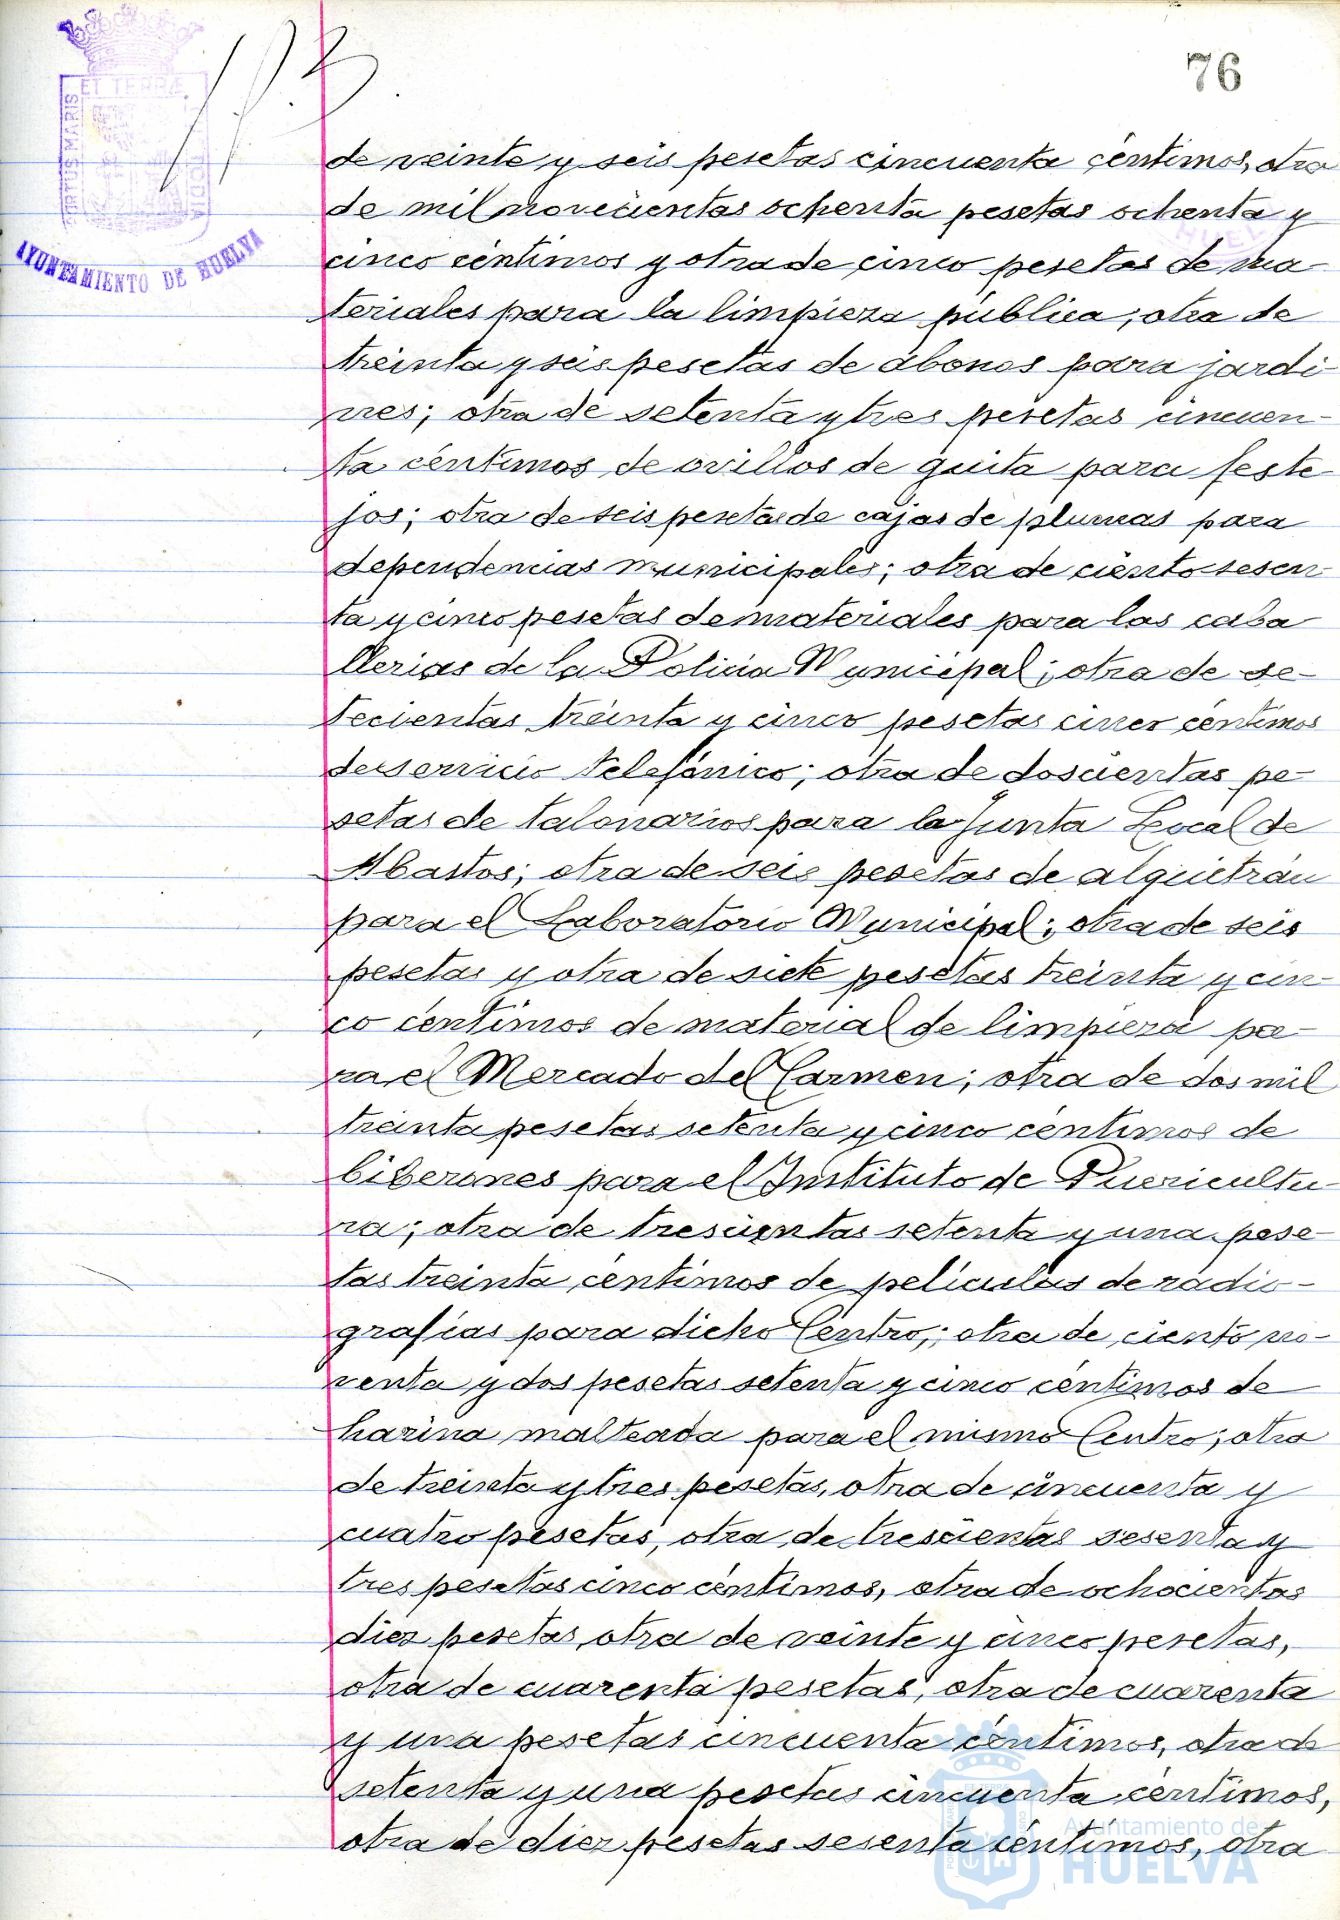 76
PORTUS MARIS
ET TERRÆ
CUSTODIA
AYUNTAMIENTO DE HUELVA
de veinte y seis pesetas cincuenta céntimos, otra
de mil novecientas ochenta pesetas ochenta y
cinco céntimos y otra de cinco pesetas de ma-
teriales para la limpieza pública; otra de
treinta y seis pesetas de abonos para jardi-
nes; otra de setenta y tres pesetas cincuen-
ta céntimos de ovillos de guita para feste-
jos; otra de seis pesetas de cajas de plumas para
dependencias municipales; otra de ciento sesen-
ta y cinco pesetas de materiales para las caba
llerias de la Policia Municipal; otra de se-
tecientas treinta y cinco pesetas cinco céntimos
de servicio telefónico; otra de doscientas pe-
setas de talonarios para la Junta Local de
Abastos; otra de seis pesetas de alquitrán
para el Laboratorio Municipal; otra de seis
pesetas y otra de siete pesetas treinta y cin-
co céntimos de material de limpieza pa-
ra el Mercado del Carmen; otra de dos mil
treinta pesetas setenta y cinco céntimos de
biberones para el Instituto de Puericultu-
ra; otra de trescientas setenta y una pese-
tas treinta céntimos de películas de radio-
grafías para dicho Centro; otra de ciento no-
venta y dos pesetas setenta y cinco céntimos de
harina malteada para el mismo Centro; otra
de treinta y tres pesetas, otra de cincuenta y
cuatro pesetas, otra de trescientas sesenta y
tres pesetas cinco céntimos, otra de ochocientas
diez pesetas, otra de veinte y cinco pesetas,
otra de cuarenta pesetas, otra de cuarenta
y una pesetas cincuenta céntimos, otra de
setenta y una pesetas cincuenta céntimos,
otra de diez pesetas sesenta céntimos, otra
Ayuntamiento de
HUELVA